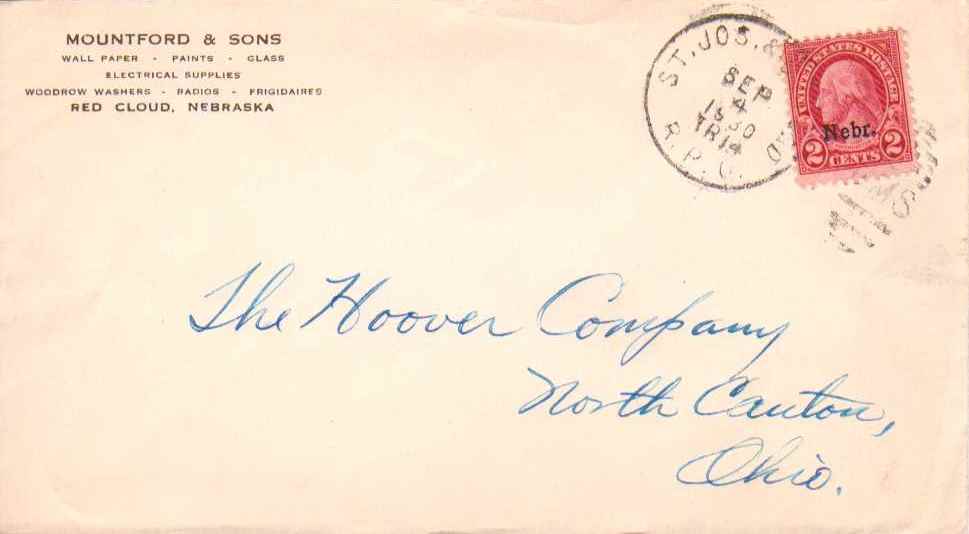 MOUNTFORD & SONS
WALL PAPER - PAINTS - GLASS
ELECTRICAL SUPPLIES
WOODROW WASHERS - RADIOS - FRIGIDAIRES
RED CLOUD, NEBRASKA
ST. JOS. &
SEP
4
1930
TR14
R.P.O.
UNITED STATES POSTAGE
Nebr.
2 CENTS 2
MS
The Hoover Company
North Canton,
Ohio.